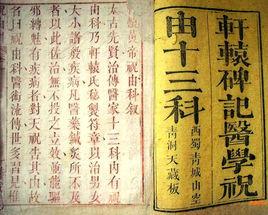 軒轅碑記醫學祝
由十三科
西蜀青城山空
青洞天藏板
黃帝祝由科叙
太古先賢治傳醫家十三科內有祝
由科乃軒轅氏秘製符章以治男女
大小諸般疾病凡醫藥鍼灸所不及
者以此佐治無不投之立效並能驅
邪縛魅有疾病對天祝告其由故
祝由科醫術流傳世多